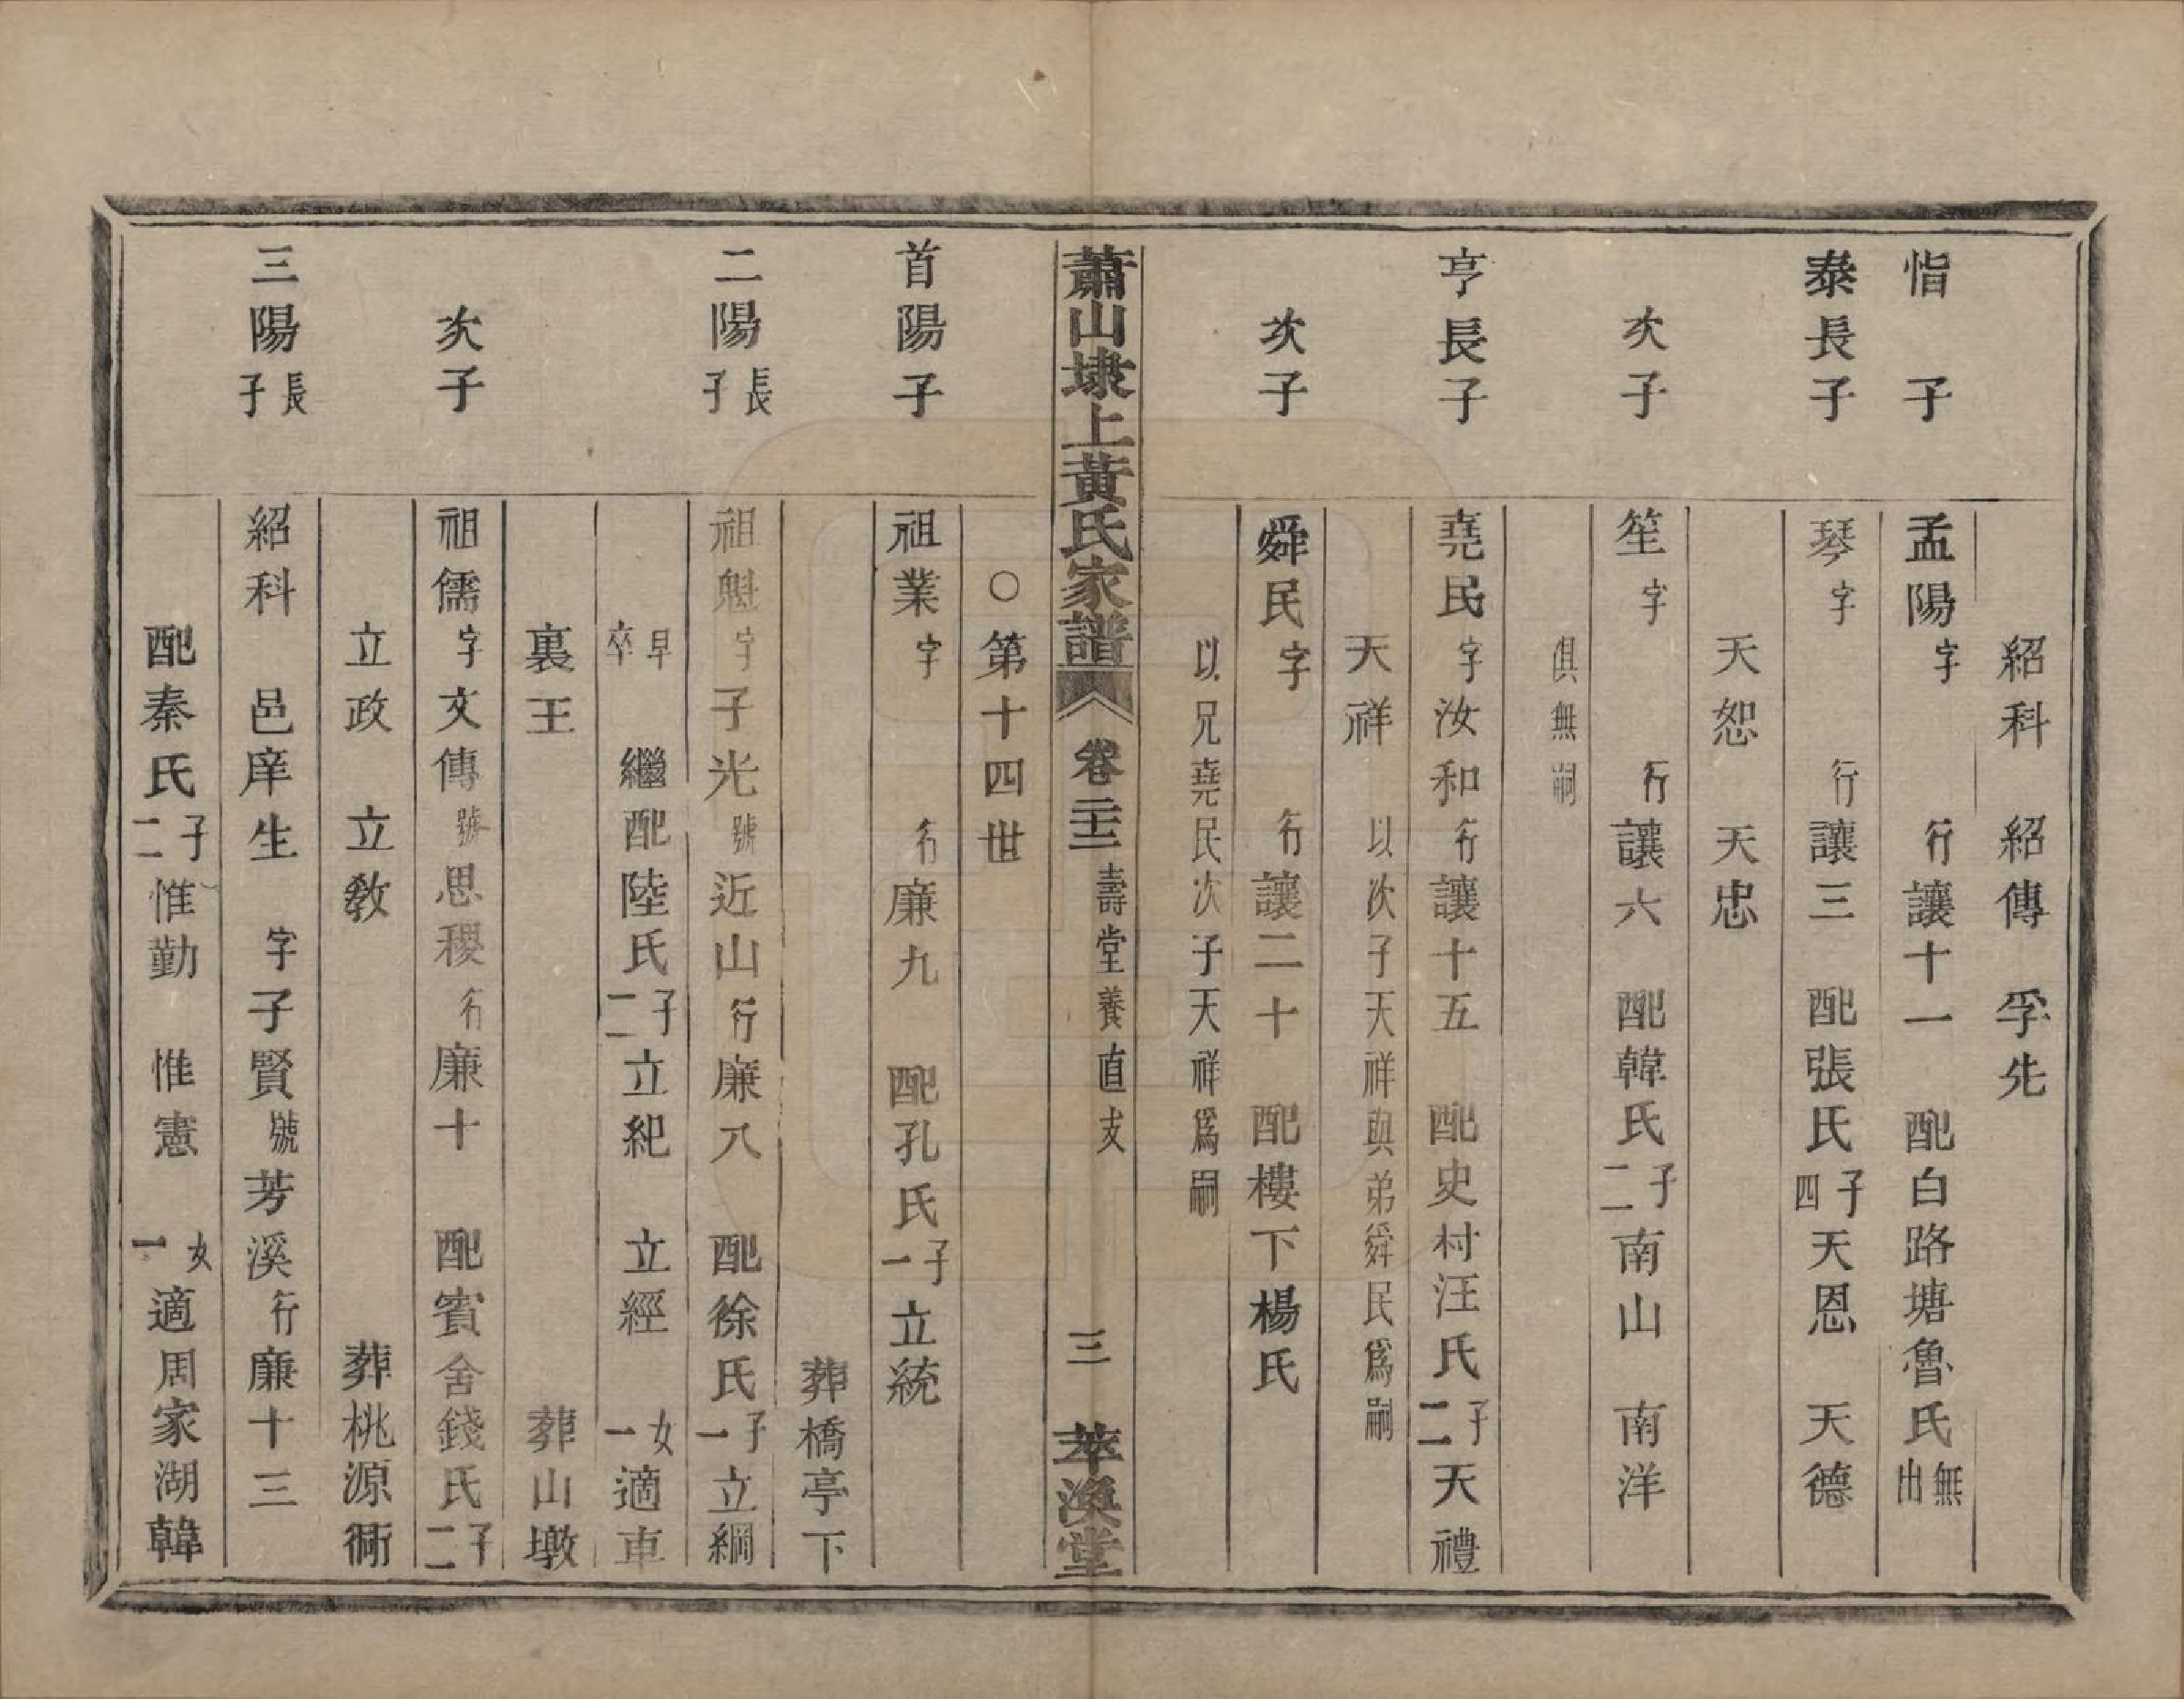 紹科　紹傳　孚先
㤙子　孟陽字　行讓十一　配白路塘魯氏無出
泰長子　琴字　行讓三　配張氏子四天恩　天德
天恕　天忠
次子　笙字　行讓六　配韓氏子二南山　南洋
俱無嗣
亨長子　堯民字汝和行讓十五　配史村汪氏子二天禮
天祥　以次子天祥與弟舜民爲嗣
次子　舜民字　行讓二十　配樓下楊氏
以兄堯民次子天祥爲嗣
蕭山埭上黃氏家譜　卷二十三　壽堂養直支　三　萃渙堂
○第十四世
首陽子　祖業字　行廉九　配孔氏子一立統
葬橋亭下
二陽長子　祖魁字子光號近山行廉八　配徐氏子一立綱
早卒　繼配陸氏子二立紀　立經　女一適車
裏王　葬山墩
次子　祖儒字文傳號思稷行廉十　配賓舍錢氏子二
立政　立教　葬桃源衕
三陽長子　紹科　邑庠生　字子賢號芳溪行廉十三
配秦氏子二惟勤　惟憲　女一適周家湖韓